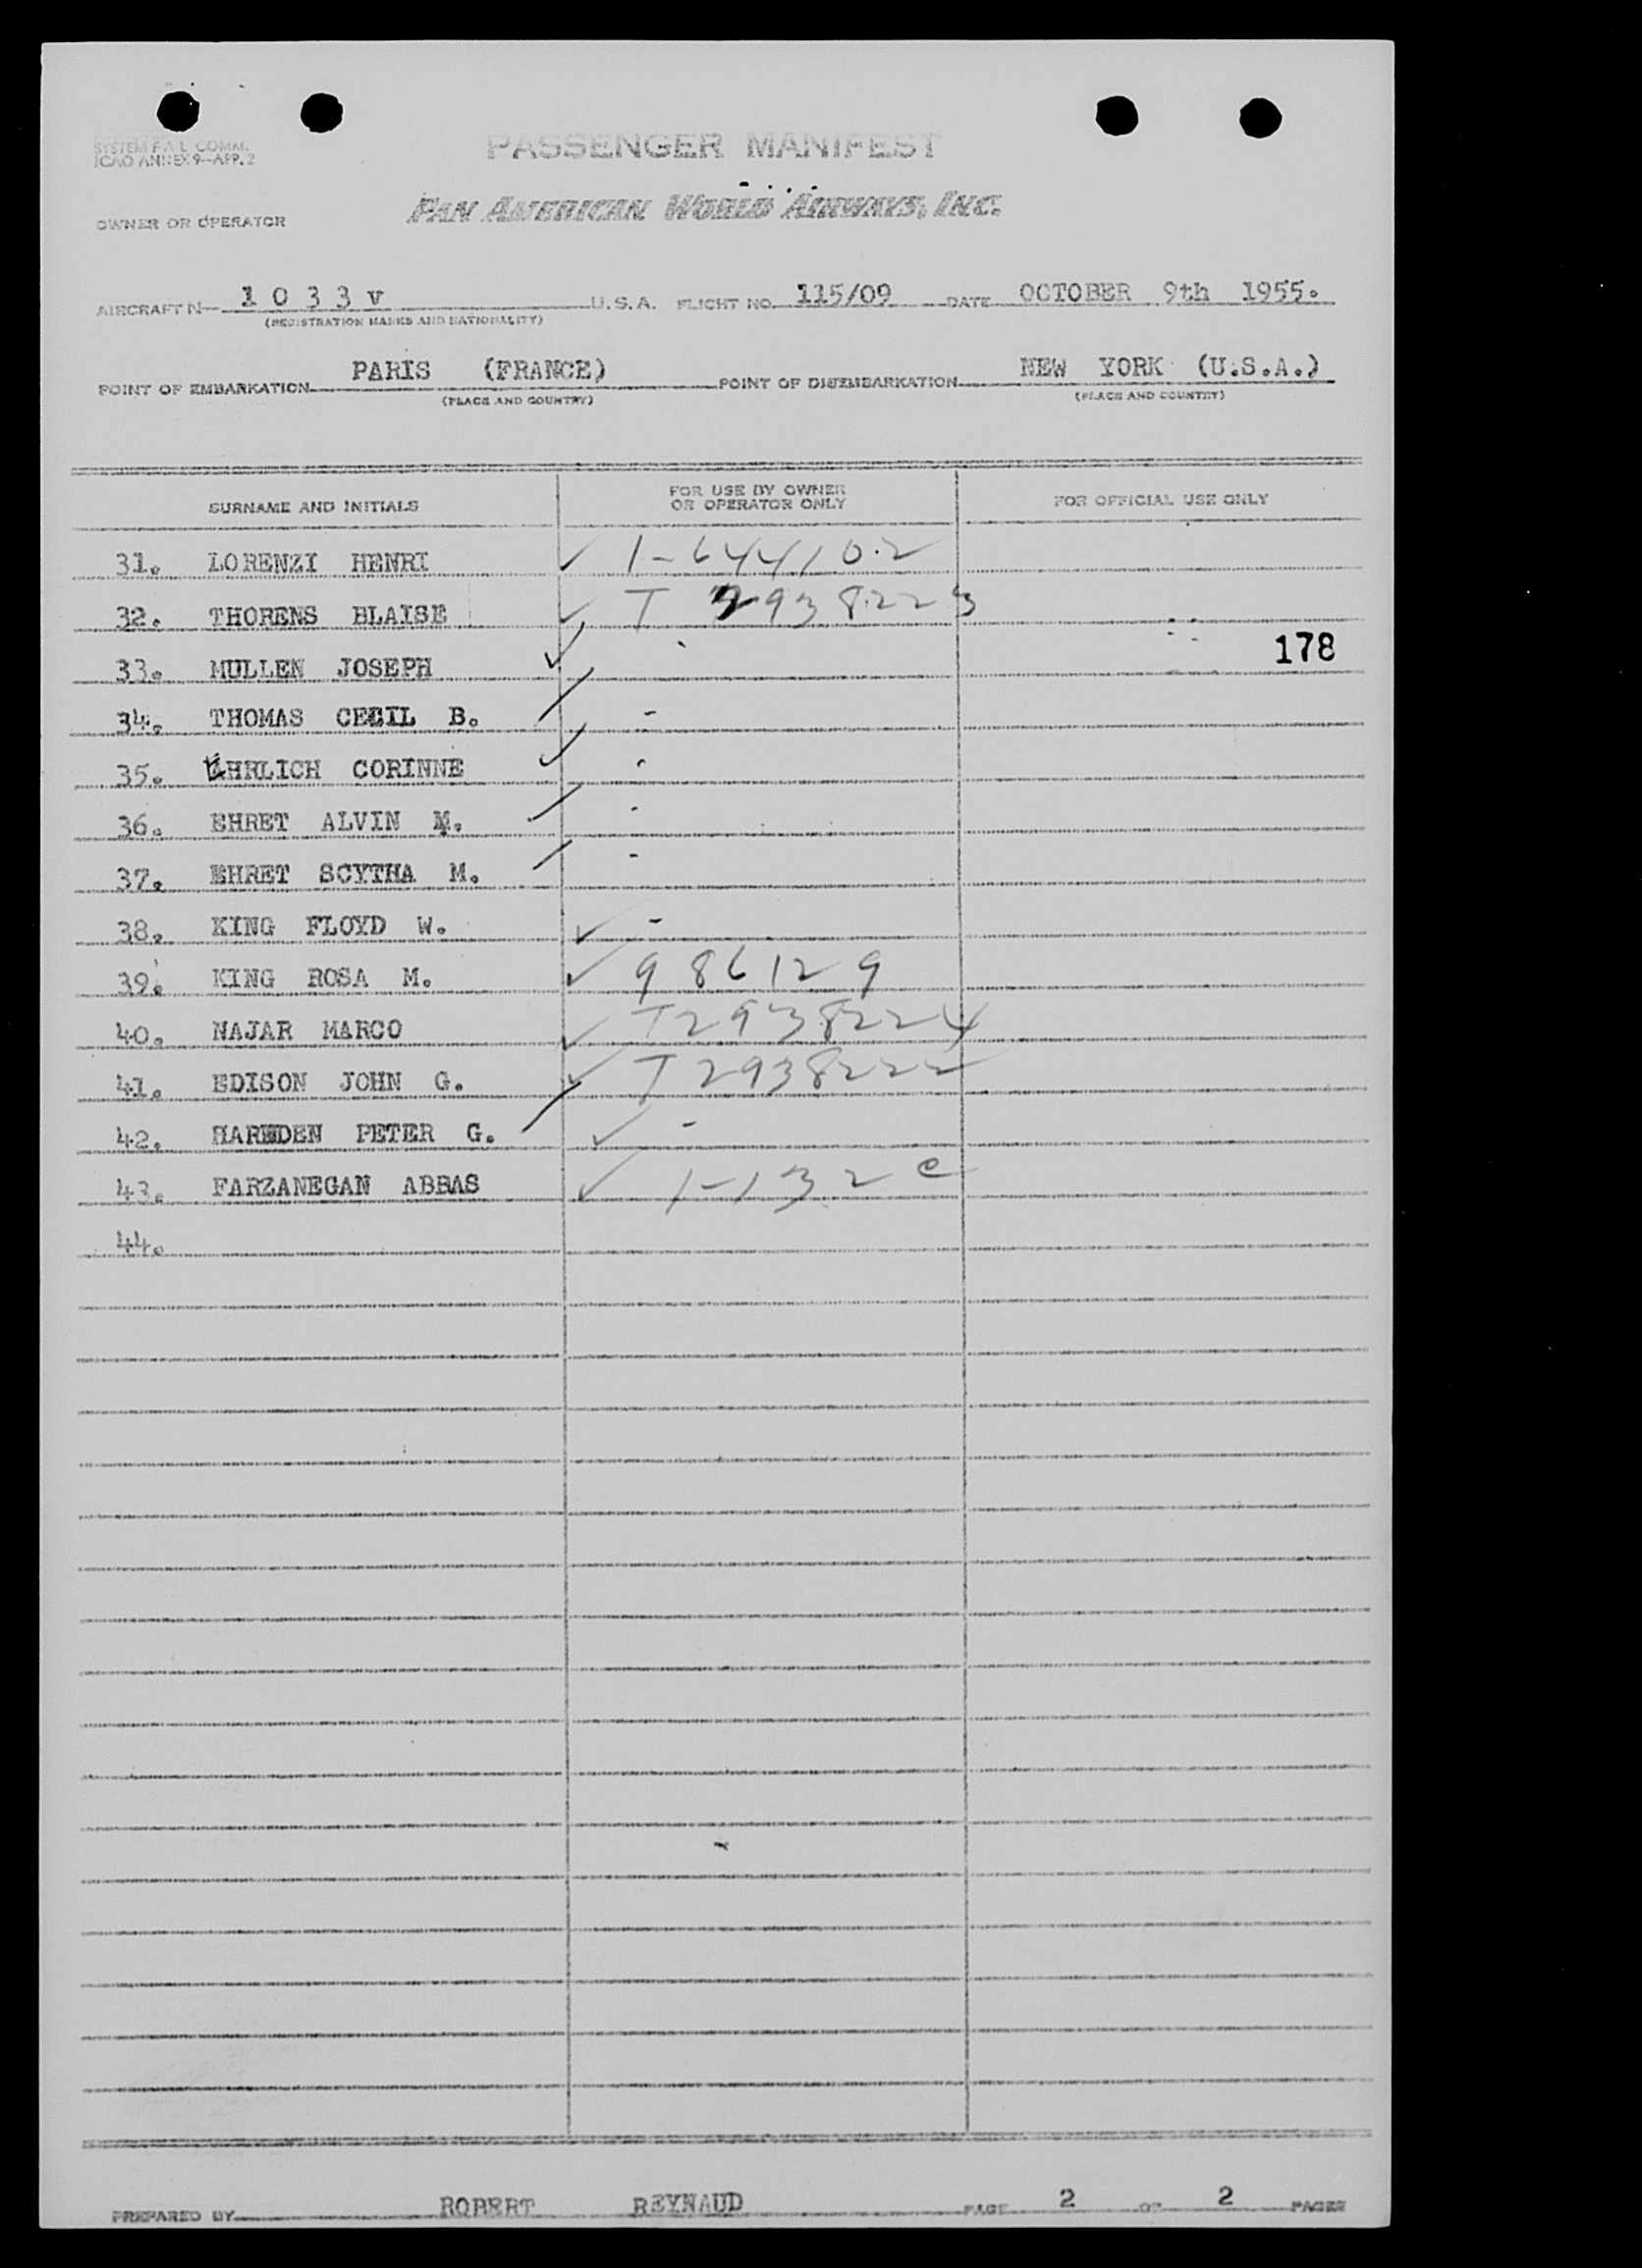 SYSTEM F.A.L. COMM.
ICAO ANNEX 9-APP. 2
PASSENGER MANIFEST
OWNER OR OPERATOR PAN AMERICAN WORLD AIRWAYS, INC.
AIRCRAFT N- 1 0 3 3 v U.S.A. FLIGHT NO. 115/09 DATE OCTOBER 9th 1955.
(REGISTRATION MARKS AND NATIONALITY)
POINT OF EMBARKATION PARIS (FRANCE) POINT OF DISEMBARKATION NEW YORK (U.S.A.)
(PLACE AND COUNTRY) (PLACE AND COUNTRY)
SURNAME AND INITIALS FOR USE BY OWNER OR OPERATOR ONLY FOR OFFICIAL USE ONLY
31. LORENZI HENRI ✓ 1-644102
32. THORENS BLAISE ✓ T 2938223
178
33. MULLEN JOSEPH ✓
34. THOMAS CECIL B. / -
35. EHRLICH CORINNE ✓ -
36. EHRET ALVIN M. / -
37. EHRET SCYTHA M. / -
38. KING FLOYD W. ✓ -
39. KING ROSA M. ✓ 986129
40. NAJAR MARCO ✓ T2938224
41. EDISON JOHN G. ✓ T2938222
42. PETER G. / ✓ -
43. FARZANEGAN ABBAS ✓ 1-132 e
44.
PREPARED BY ROBERT REYNAUD PAGE 2 OF 2 PAGES